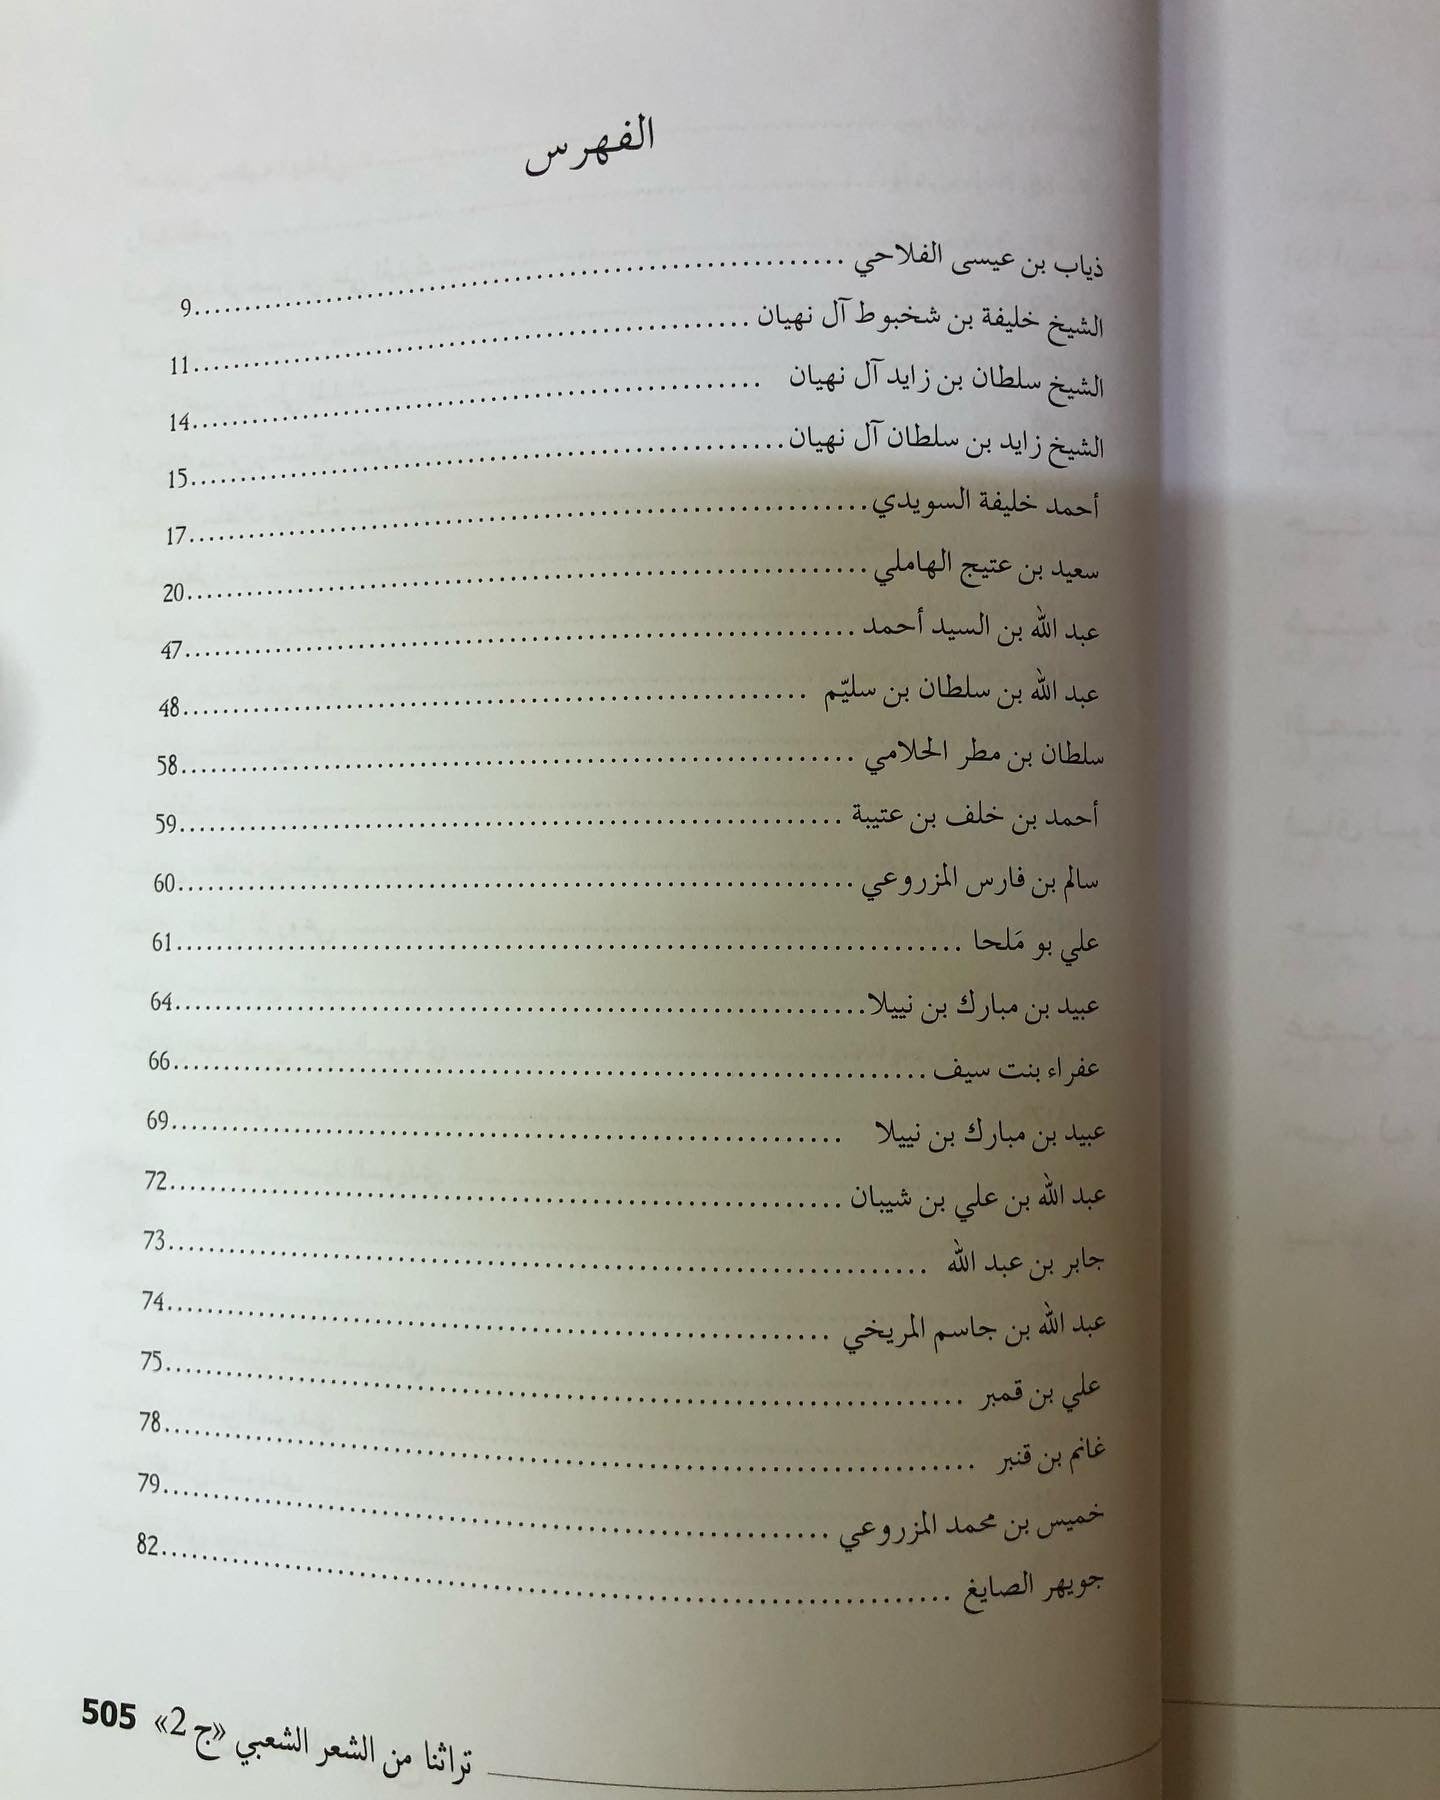 الفهرس
ذياب بن عيسى الفلاحي ........................................ 9
الشيخ خليفة بن شخبوط آل نهيان ........................................ 11
الشيخ سلطان بن زايد آل نهيان ........................................ 14
الشيخ زايد بن سلطان آل نهيان ........................................ 15
أحمد خليفة السويدي ........................................ 17
سعيد بن عتيج الهاملي ........................................ 20
عبد الله بن السيد أحمد ........................................ 47
عبد الله بن سلطان بن سليّم ........................................ 48
سلطان بن مطر الحلامي ........................................ 58
أحمد بن خلف بن عتيبة ........................................ 59
سالم بن فارس المزروعي ........................................ 60
علي بو مَلحا ........................................ 61
عبيد بن مبارك بن نييلا ........................................ 64
عفراء بنت سيف ........................................ 66
عبيد بن مبارك بن نييلا ........................................ 69
عبد الله بن علي بن شيبان ........................................ 72
جابر بن عبد الله ........................................ 73
عبد الله بن جاسم المريخي ........................................ 74
علي بن قمبر ........................................ 75
غانم بن قنبر ........................................ 78
خميس بن محمد المزروعي ........................................ 79
جويهر الصايغ ........................................ 82
تراثنا من الشعر الشعبي «ج 2» 505